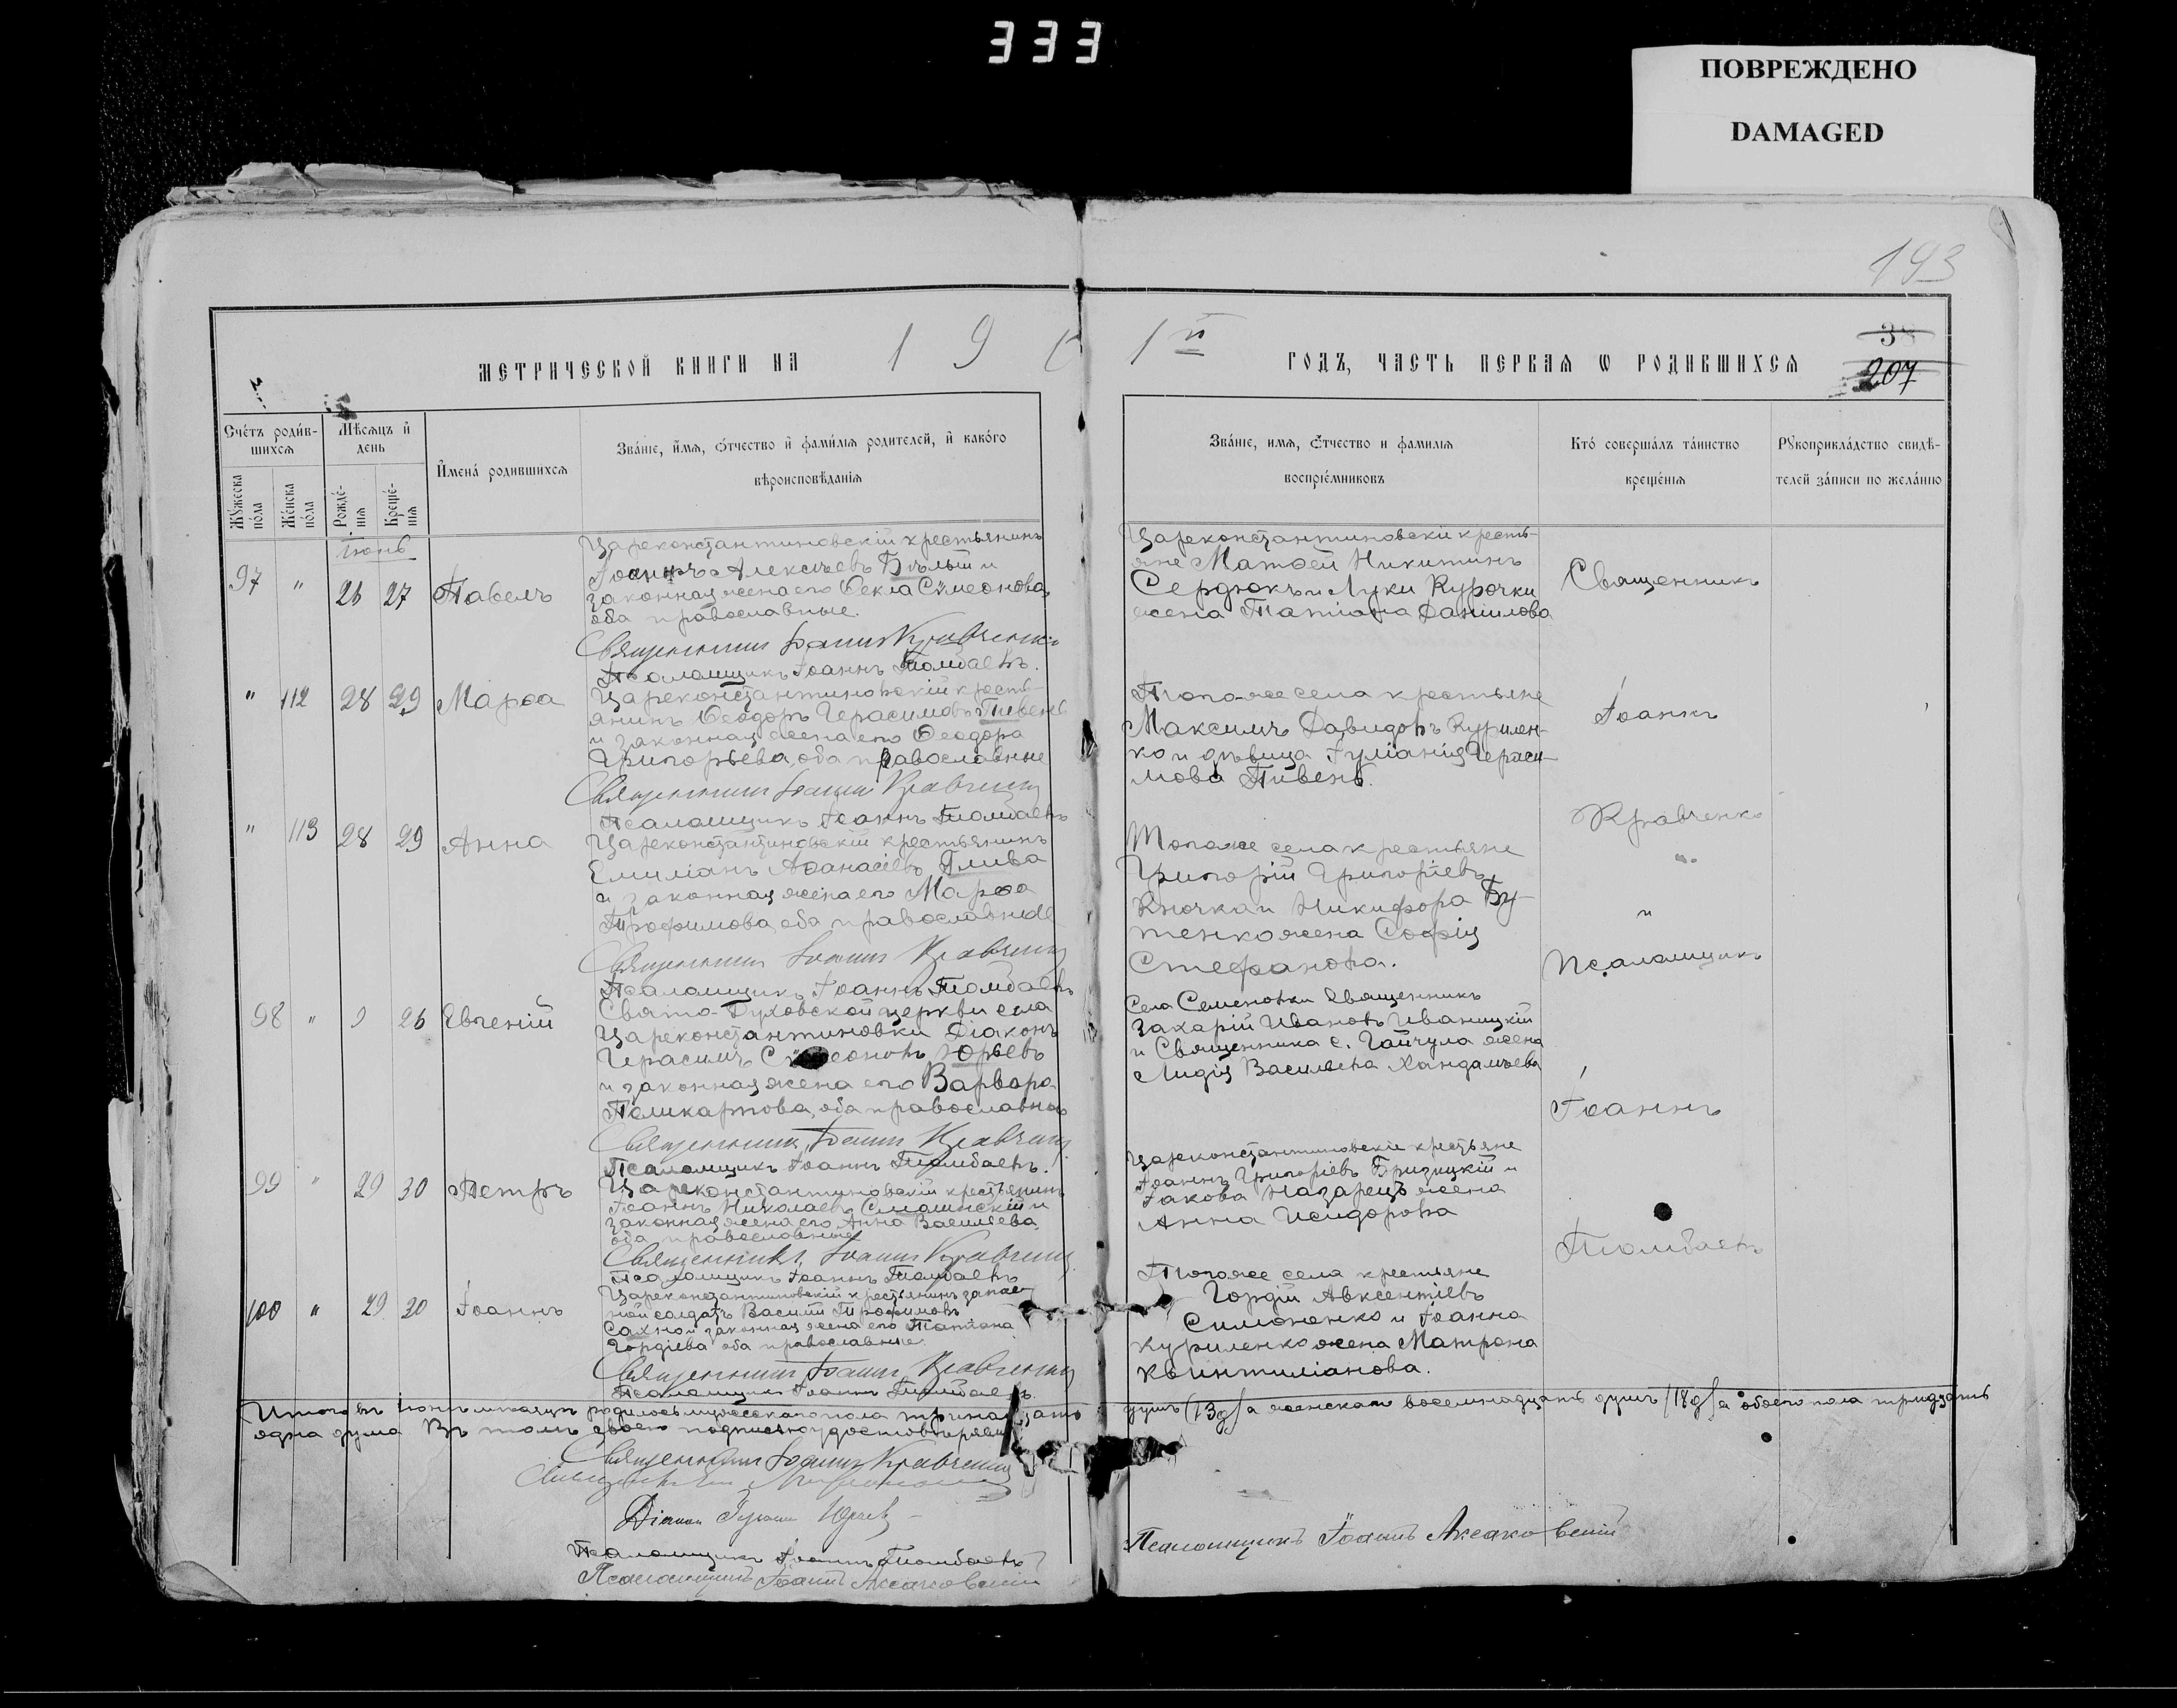 333
ПОВРЕЖДЕНО
DAMAGED
193
МЕТРИЧЕСКОЙ КНИГИ НА 19
1й ГОДЪ, ЧАСТЬ ПЕРВАЯ Ѡ РОДИВШИХСЯ
38
207
Счетъ родив-
шихся
Мужеска пола
Женска пола
Мѣсяцъ и
день
Рожде-
нія
Креще-
нія
Имена родившихся
Званіе, имя, отчество и фамилія родителей, и какого
вѣроисповѣданія
Званіе, имя, отчество и фамилія
воспріемниковъ
Кто совершалъ таинство
крещенія
Рукоприкладство свидѣ-
телей записи по желанію
Іюнь
97 " 26 27 Павелъ
Цареконстантиновскій крестьянинъ
Іоаннъ Алексѣевъ Бѣлый и
законная жена его Ѳекла Сѵмеонова
оба православные.
Священникъ Іоаннъ Кравченко
Псаломщикъ Іоаннъ
Цареконстантиновскіи кресть-
яне Матѳей Никитинъ
Сердюкъ и Луки Курочки
жена Татіана Даніилова
Священникъ
" 112 28 29 Марѳа
Цареконстантиновскій кресть-
янинъ Ѳеодоръ Герасимовъ Пивень
и законная жена его Ѳеодора
Григорьева, оба православные
Священникъ Іоаннъ Кравченко
Псаломщикъ Іоаннъ
Того-же села крестьяне
Максимъ Давидовъ Курилен-
ко и дѣвица Іуліанія Гераси-
мова Пивень.
Іоаннъ
" 113 28 29 Анна
Цареконстантиновскій крестьянинъ
Емиліанъ Аѳанасіевъ Глива
и законная жена его Марѳа
Трофимова, оба православные
Священникъ Іоаннъ Кравченко
Псаломщикъ Іоаннъ
Того же села крестьяне
Григорій Григоріевъ
Ключка и Никифора Бу-
тенко жена Софія
Стефанова.
Кравченко
и
Псаломщикъ
98 " 9 26 Евгеній
Свято-Духовской церкви села
Цареконстантиновки Діаконъ
Герасимъ Юрьевъ
и законная жена его Варвара
Поликарпова, оба православные
Священникъ Іоаннъ Кравченко
Псаломщикъ Іоаннъ
Села Семеновки Священникъ
Захарій Ивановъ Иваницкій
и Священника с. Гайчула жена
Лидія Васильева
Іоаннъ
99 " 29 30 Петръ
Цареконстантиновскій крестьянинъ
Іоаннъ Николаевъ и
законная жена его Анна Васильева
оба православные
Священникъ Іоаннъ Кравченко
Псаломщикъ Іоаннъ
Цареконстантиновскіе крестьяне
Іоаннъ Григоріевъ Бризицкій и
Іакова Назарецъ жена
Анна Исидорова
100 " 29 30 Іоаннъ
Цареконстантиновскій крестьянинъ запас-
ной солдатъ Василій Трофимовъ
Сахно и законная жена его Татіана
Гордіева оба православные
Священникъ Іоаннъ Кравченко
Псаломщикъ Іоаннъ
Того же села крестьяне
Гордій Авксентіевъ
Симоненко и Іоанна
Куриленко жена Матрона
Квинтиліанова.
Итого въ Іюнѣ мѣсяцѣ родилось мужескаго пола тринадцать душъ (13д) а женскаго восемнадцать душъ (18д) а обоего пола тридцать
одна душа Въ томъ своею подписью удостовѣряемъ
Священникъ Іоаннъ Кравченко
Діаконъ Герасимъ Юрьевъ
Псаломщикъ Іоаннъ
Псаломщикъ Іоаннъ Аксаковскій
Псаломщикъ Іоаннъ Аксаковскій